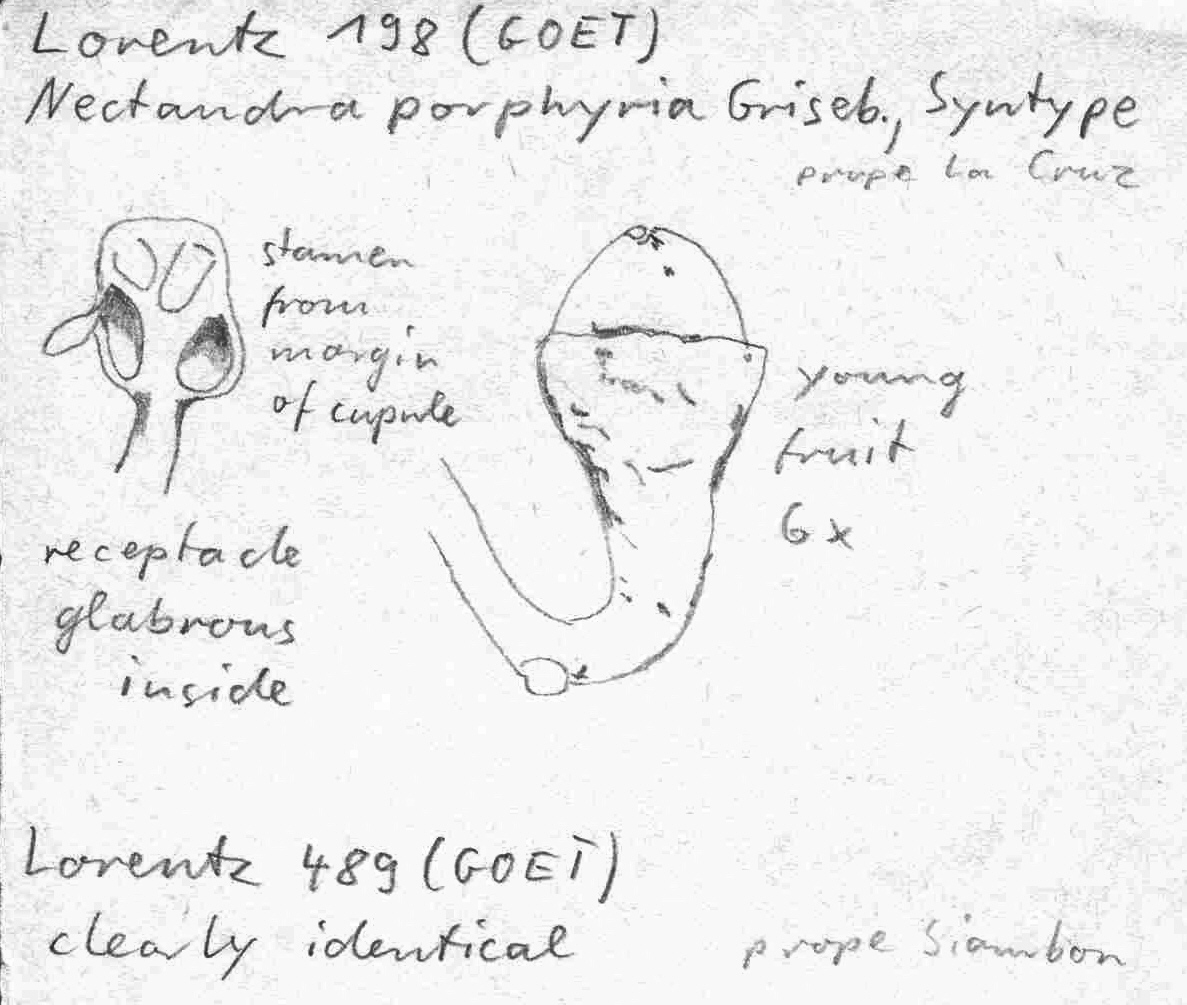 Lorentz 198 (GOET)
Nectandra porphyria Griseb., Syntype
prope La Cruz
stamen
from
margin
of cupule
young
fruit
6x
receptacle
glabrous
inside
Lorentz 489 (GOET)
clearly identical
prope Siambon